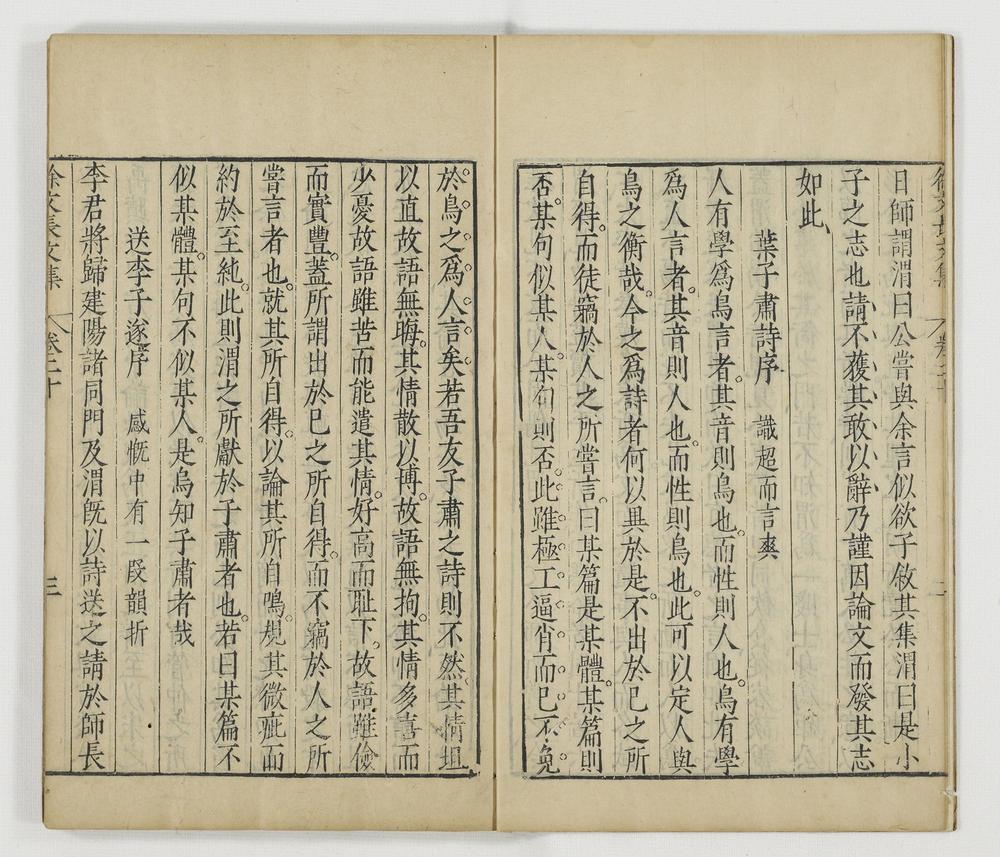 日師謂渭曰公嘗與余言似欲子敘其集渭曰是小
子之志也請不獲其敢以辭乃謹因論文而發其志
如此
葉子肅詩序 識超而言爽
人有學爲鳥言者其音則鳥也而性則人也鳥有學
爲人言者其音則人也而性則鳥也此可以定人與
鳥之衡哉今之爲詩者何以異於是不出於已之所
自得而徒竊於人之所嘗言曰某篇是某體某篇則
否某句似某人某句則否此雖極工逼肖而已不免
於鳥之爲人言矣若吾友子肅之詩則不然其情坦
以直故語無晦其情散以博故語無拘其情多喜而
少憂故語雖苦而能遣其情好高而恥下故語雖儉
而實豐蓋所謂出於已之所自得而不竊於人之所
嘗言者也就其所自得以論其所自鳴規其微疵而
約於至純此則渭之所獻於子肅者也若曰某篇不
似某體某句不似某人是烏知子肅者哉
送李子遂序 感慨中有一段韻折
李君將歸建陽諸同門及渭既以詩送之請於師長
徐文長文集 卷二十 三